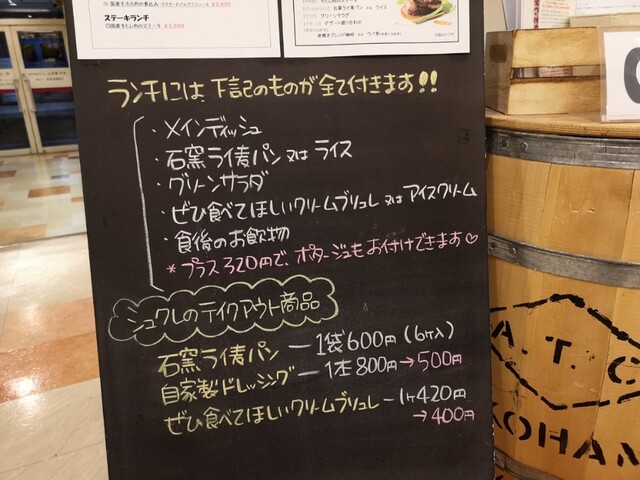 ステーキランチ
ランチには、下記のものが全て付きます!!
・メインディッシュ
・石窯ライ麦パン 又は ライス
・グリーンサラダ
・ぜひ食べてほしいクリームブリュレ 又は アイスクリーム
・食後のお飲物
*プラス320円で、ポタージュもお付けできます♡
シュクレのテイクアウト商品
石窯ライ麦パン ー 1袋600円(6ケ入)
自家製ドレッシング ー 1本800円→500円
ぜひ食べてほしいクリームブリュレ ー 1ケ420円
→400円
A.T.C
KOHAM